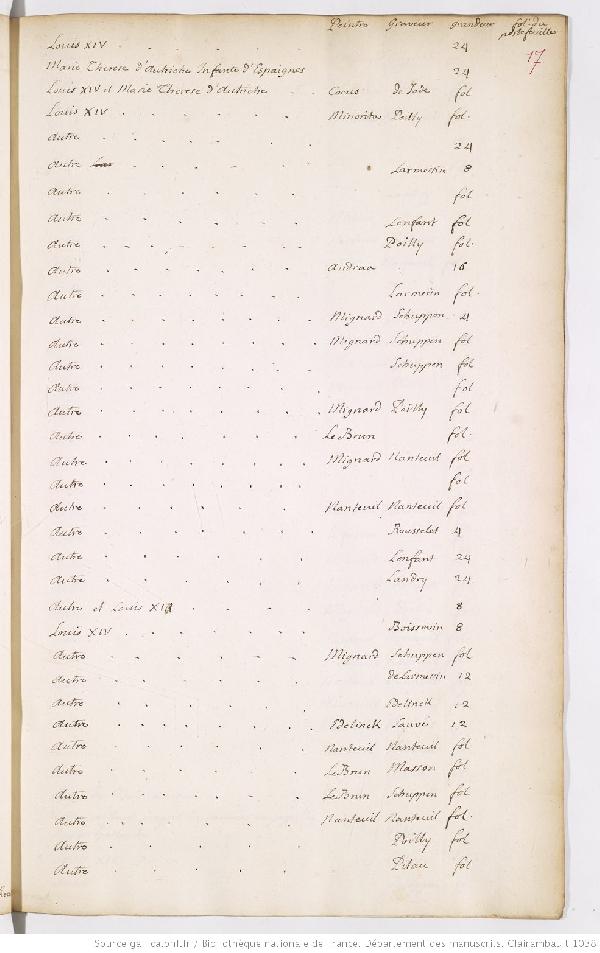 Peintre Graveur grandeur fol. du portefeuille
17
Louis XIV . . . . . 24
Marie Therese d'Autriche Infante d'Espaignes 24
Louis XIV et Marie Therese d'Autriche . . de fol
Louis XIV . . . . . Minoritas Poilly fol.
Autre . . . . . 24
Autre . . . . . Larmessin 8
Autre . . . . . fol
Autre . . . . . Lenfant fol
Autre . . . . . Poilly fol.
Autre . . . . . Audran 16
Autre . . . . . Larmessin fol.
Autre . . . . . Mignard Schuppen 4
Autre . . . . . Mignard Schuppen fol
Autre . . . . . Schuppen fol
Autre . . . . . fol
Autre . . . . . Mignard Poilly fol
Autre . . . . . Le Brun fol.
Autre . . . . . Mignard Nanteuil fol
Autre . . . . . fol
Autre . . . . . Nanteuil Nanteuil fol
Autre . . . . . Rousselet 4
Autre . . . . . Lenfant 24
Autre . . . . . Landry 24
Autre et Louis XIII . . . . . 8
Louis XIV . . . . . Boissevin 8
Autre . . . . . Mignard Schuppen fol
Autre . . . . . de Larmessin 12
Autre . . . . . Edelinck 12
Autre . . . . . Edelinck Sauvé 12
Autre . . . . . Nanteuil Nanteuil fol
Autre . . . . . Le Brun Masson fol
Autre . . . . . Le Brun Schuppen fol
Autre . . . . . Nanteuil Nanteuil fol.
Autre . . . . . Poilly fol
Autre . . . . . Pitau fol
Source gallica.bnf.fr / Bibliothèque nationale de France. Département des manuscrits. Clairambault 1038